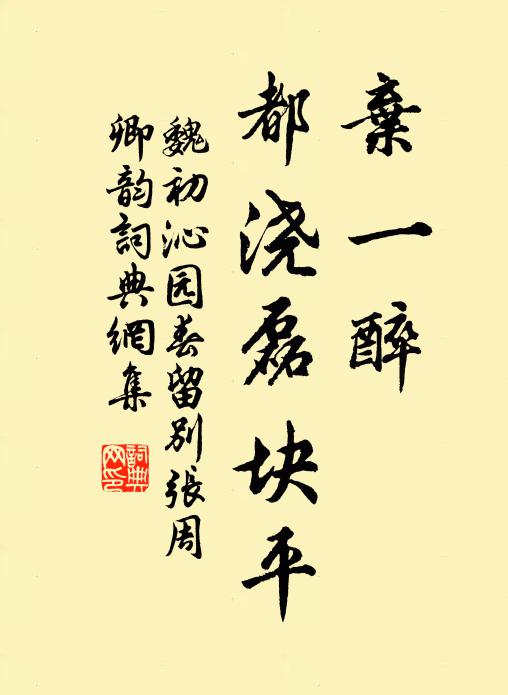 棄一醉
都浇磊块平
魏初沁园春留别張周
卿韵詞典網集
詞典
网印